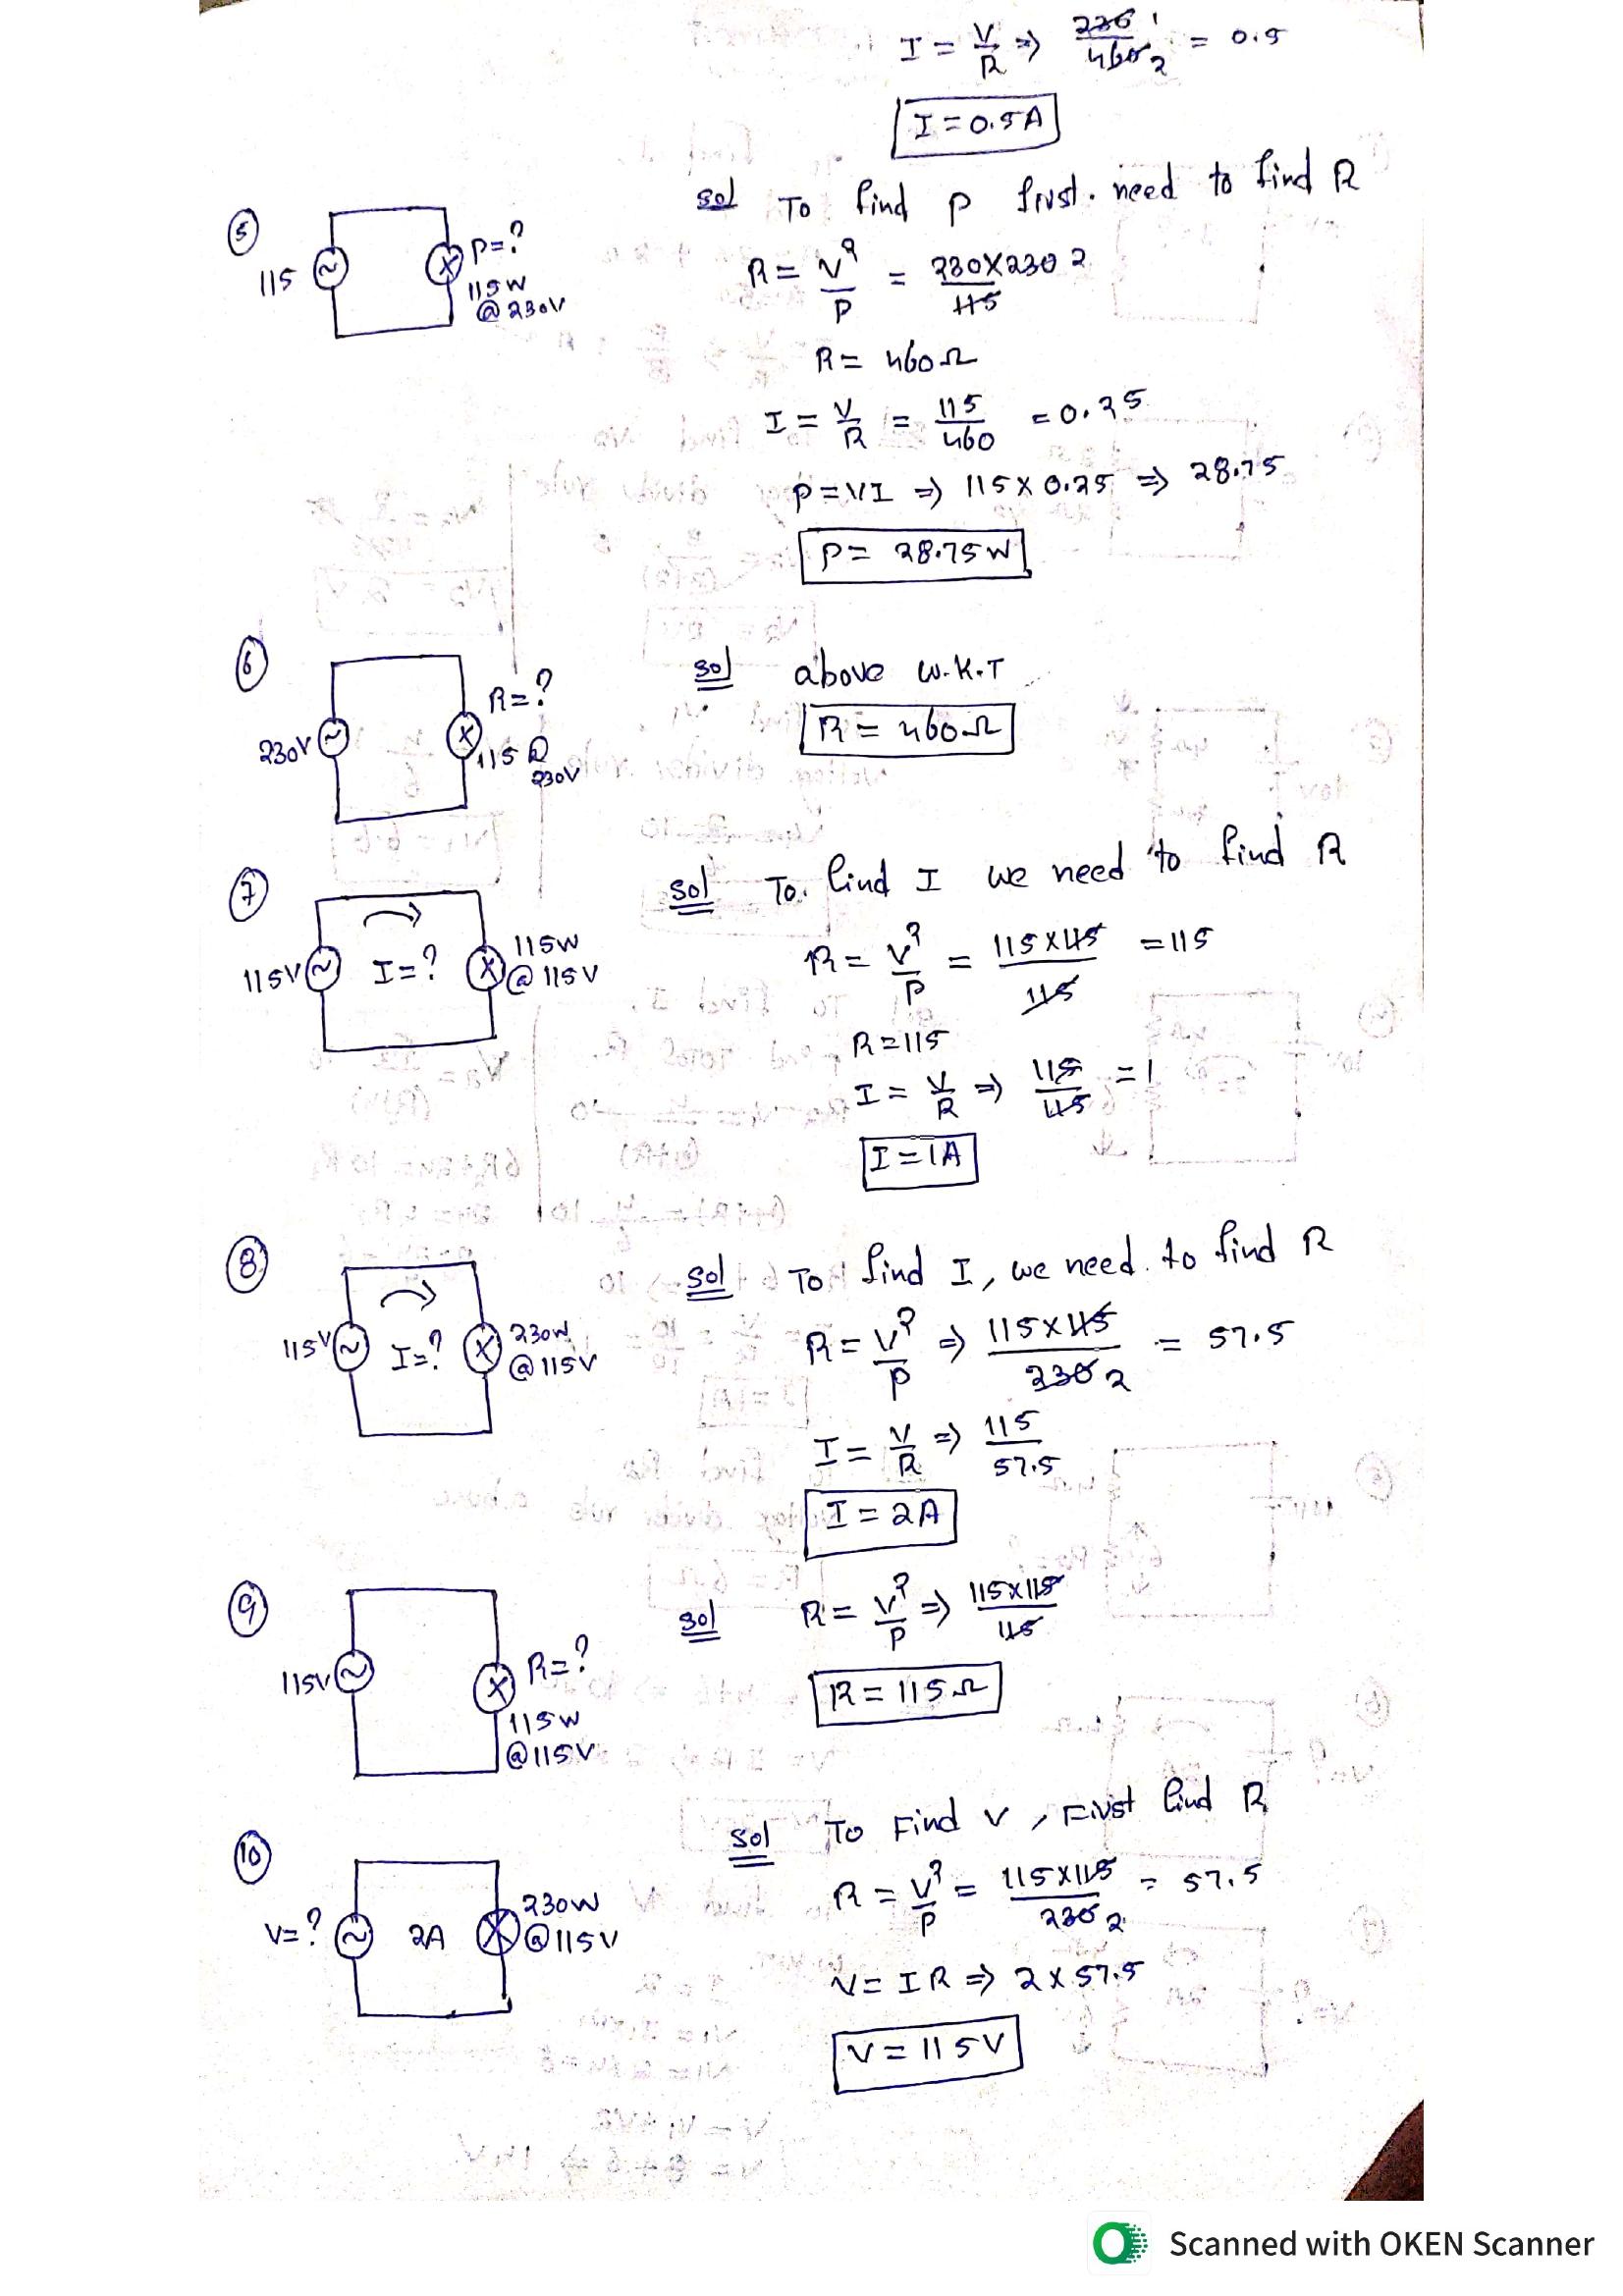 I = V/R ⇒ 230 1/460 2 = 0.5
I = 0.5A
5
115
P=?
115W
@ 230V
Sol To find P first. need to find R
R = V²/P = 230X230 2/115
R = 460Ω
I = V/R = 115/460 = 0.25
P = VI ⇒ 115 X 0.25 ⇒ 28.75
P = 28.75W
6
230V
R=?
115 Ω
230V
Sol above W.K.T
R = 460Ω
7
115V
I=?
115W
@ 115V
Sol To. find I we need to find R
R = V²/P = 115X115/115 = 115
R=115
I = V/R ⇒ 115/115 = 1
I = 1A
8
115V
I=?
230W
@ 115V
Sol To find I, we need. to find R
R = V²/P ⇒ 115X115/230 2 = 57.5
I = V/R ⇒ 115/57.5
I = 2A
9
115V
R=?
115W
@115V
Sol R = V²/P ⇒ 115X115/115
R = 115Ω
10
V=?
2A
230W
@115V
Sol To Find V, First find R
R = V²/P = 115X115/230 2 = 57.5
V = IR ⇒ 2 X 57.5
V = 115V
Scanned with OKEN Scanner